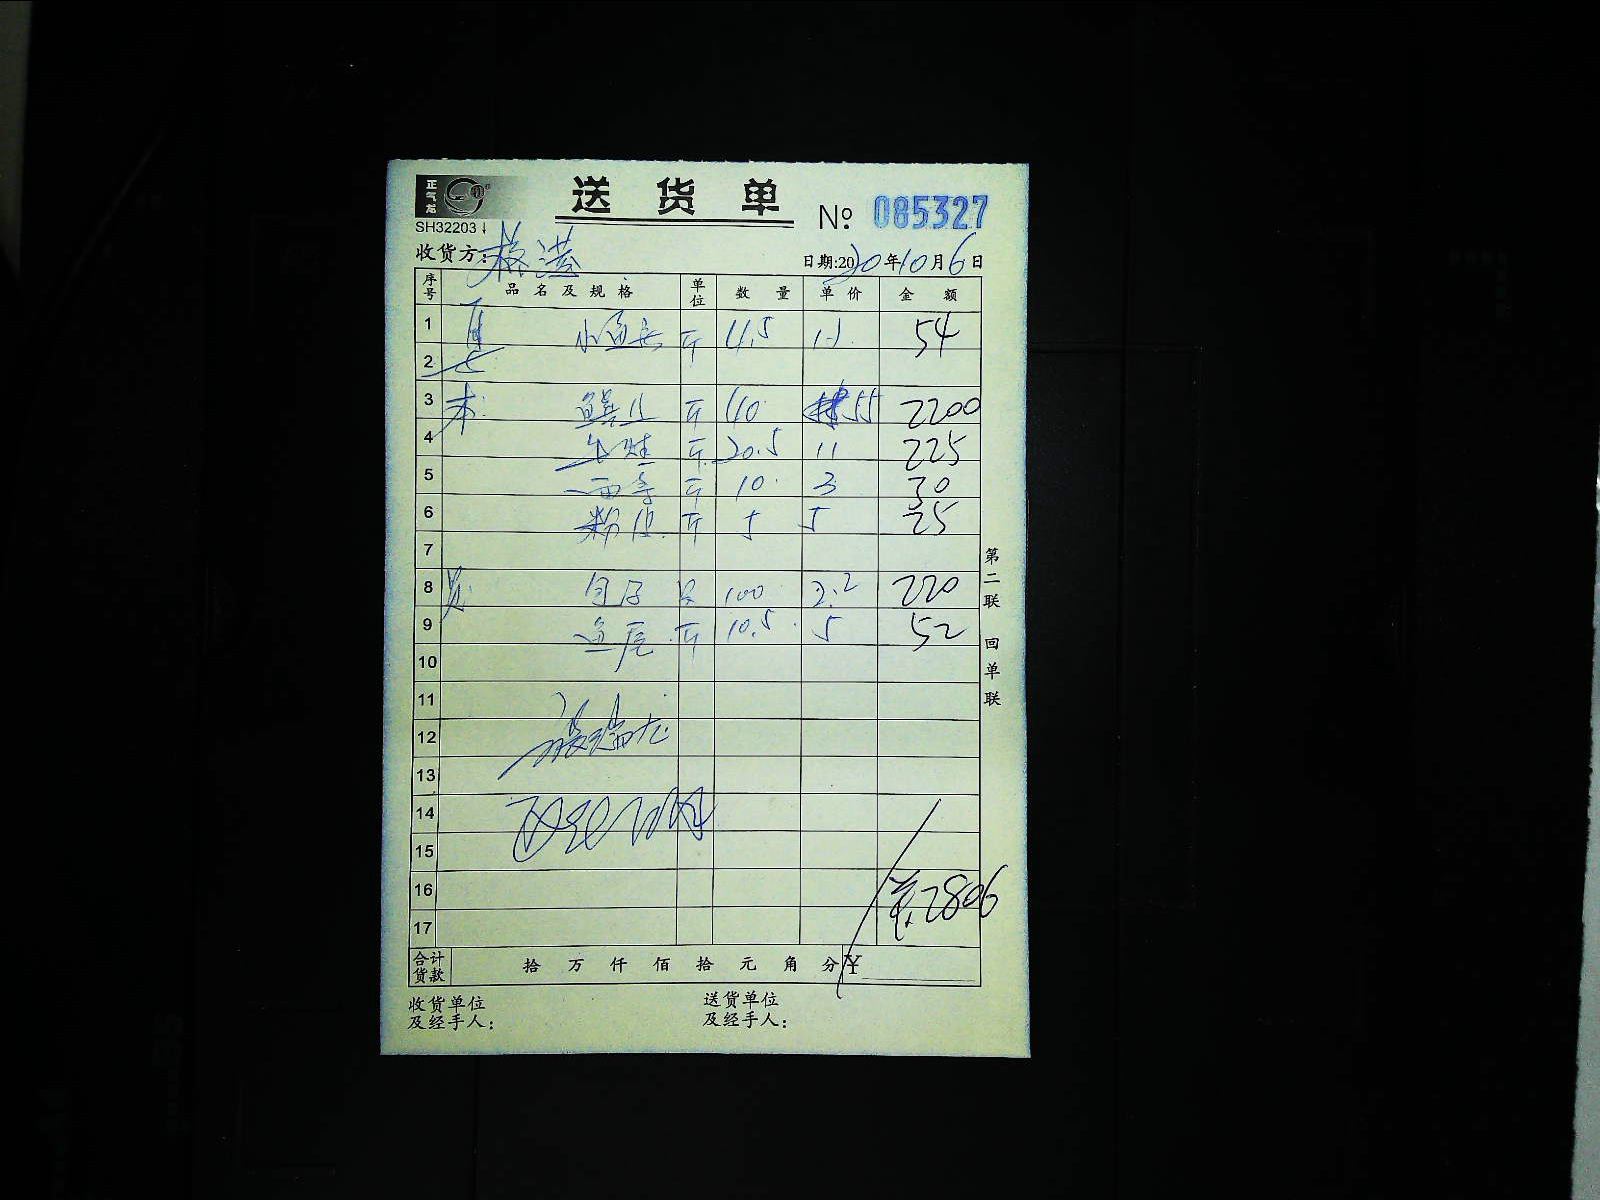 正气龙
送货单
№ 085327
SH32203
收货方:
日期:2020年10月6日
序号 品名及规格 单位 数量 单价 金额
1 小鱼 斤 4.5 12 54
2
3 本 斤 40 55 2200
4 牛蛙 斤 20.5 11 225
5 西芹 斤 10 3 30
6 粉皮 斤 5 5 25
7
8 包子 只 100 2.2 220
9 鱼尾 斤 10.5 5 52
10
11
12
13
14
15
16 2806
17
合计货款 拾 万 仟 佰 拾 元 角 分 ¥
收货单位及经手人:
送货单位及经手人:
第二联 回单联